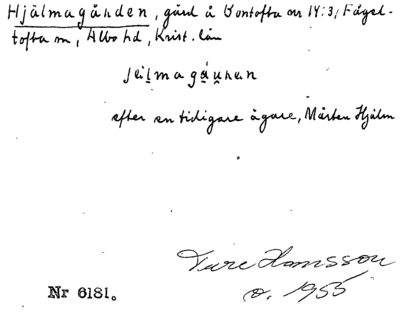 Hjälmagården, gård å Gontofta nr 14:3, Fågel-
tofta sn, Albo hd, Krist. län
efter en tidigare ägare, Mårten Hjälm
Ture Hansson
o. 1955
Nr 6181.